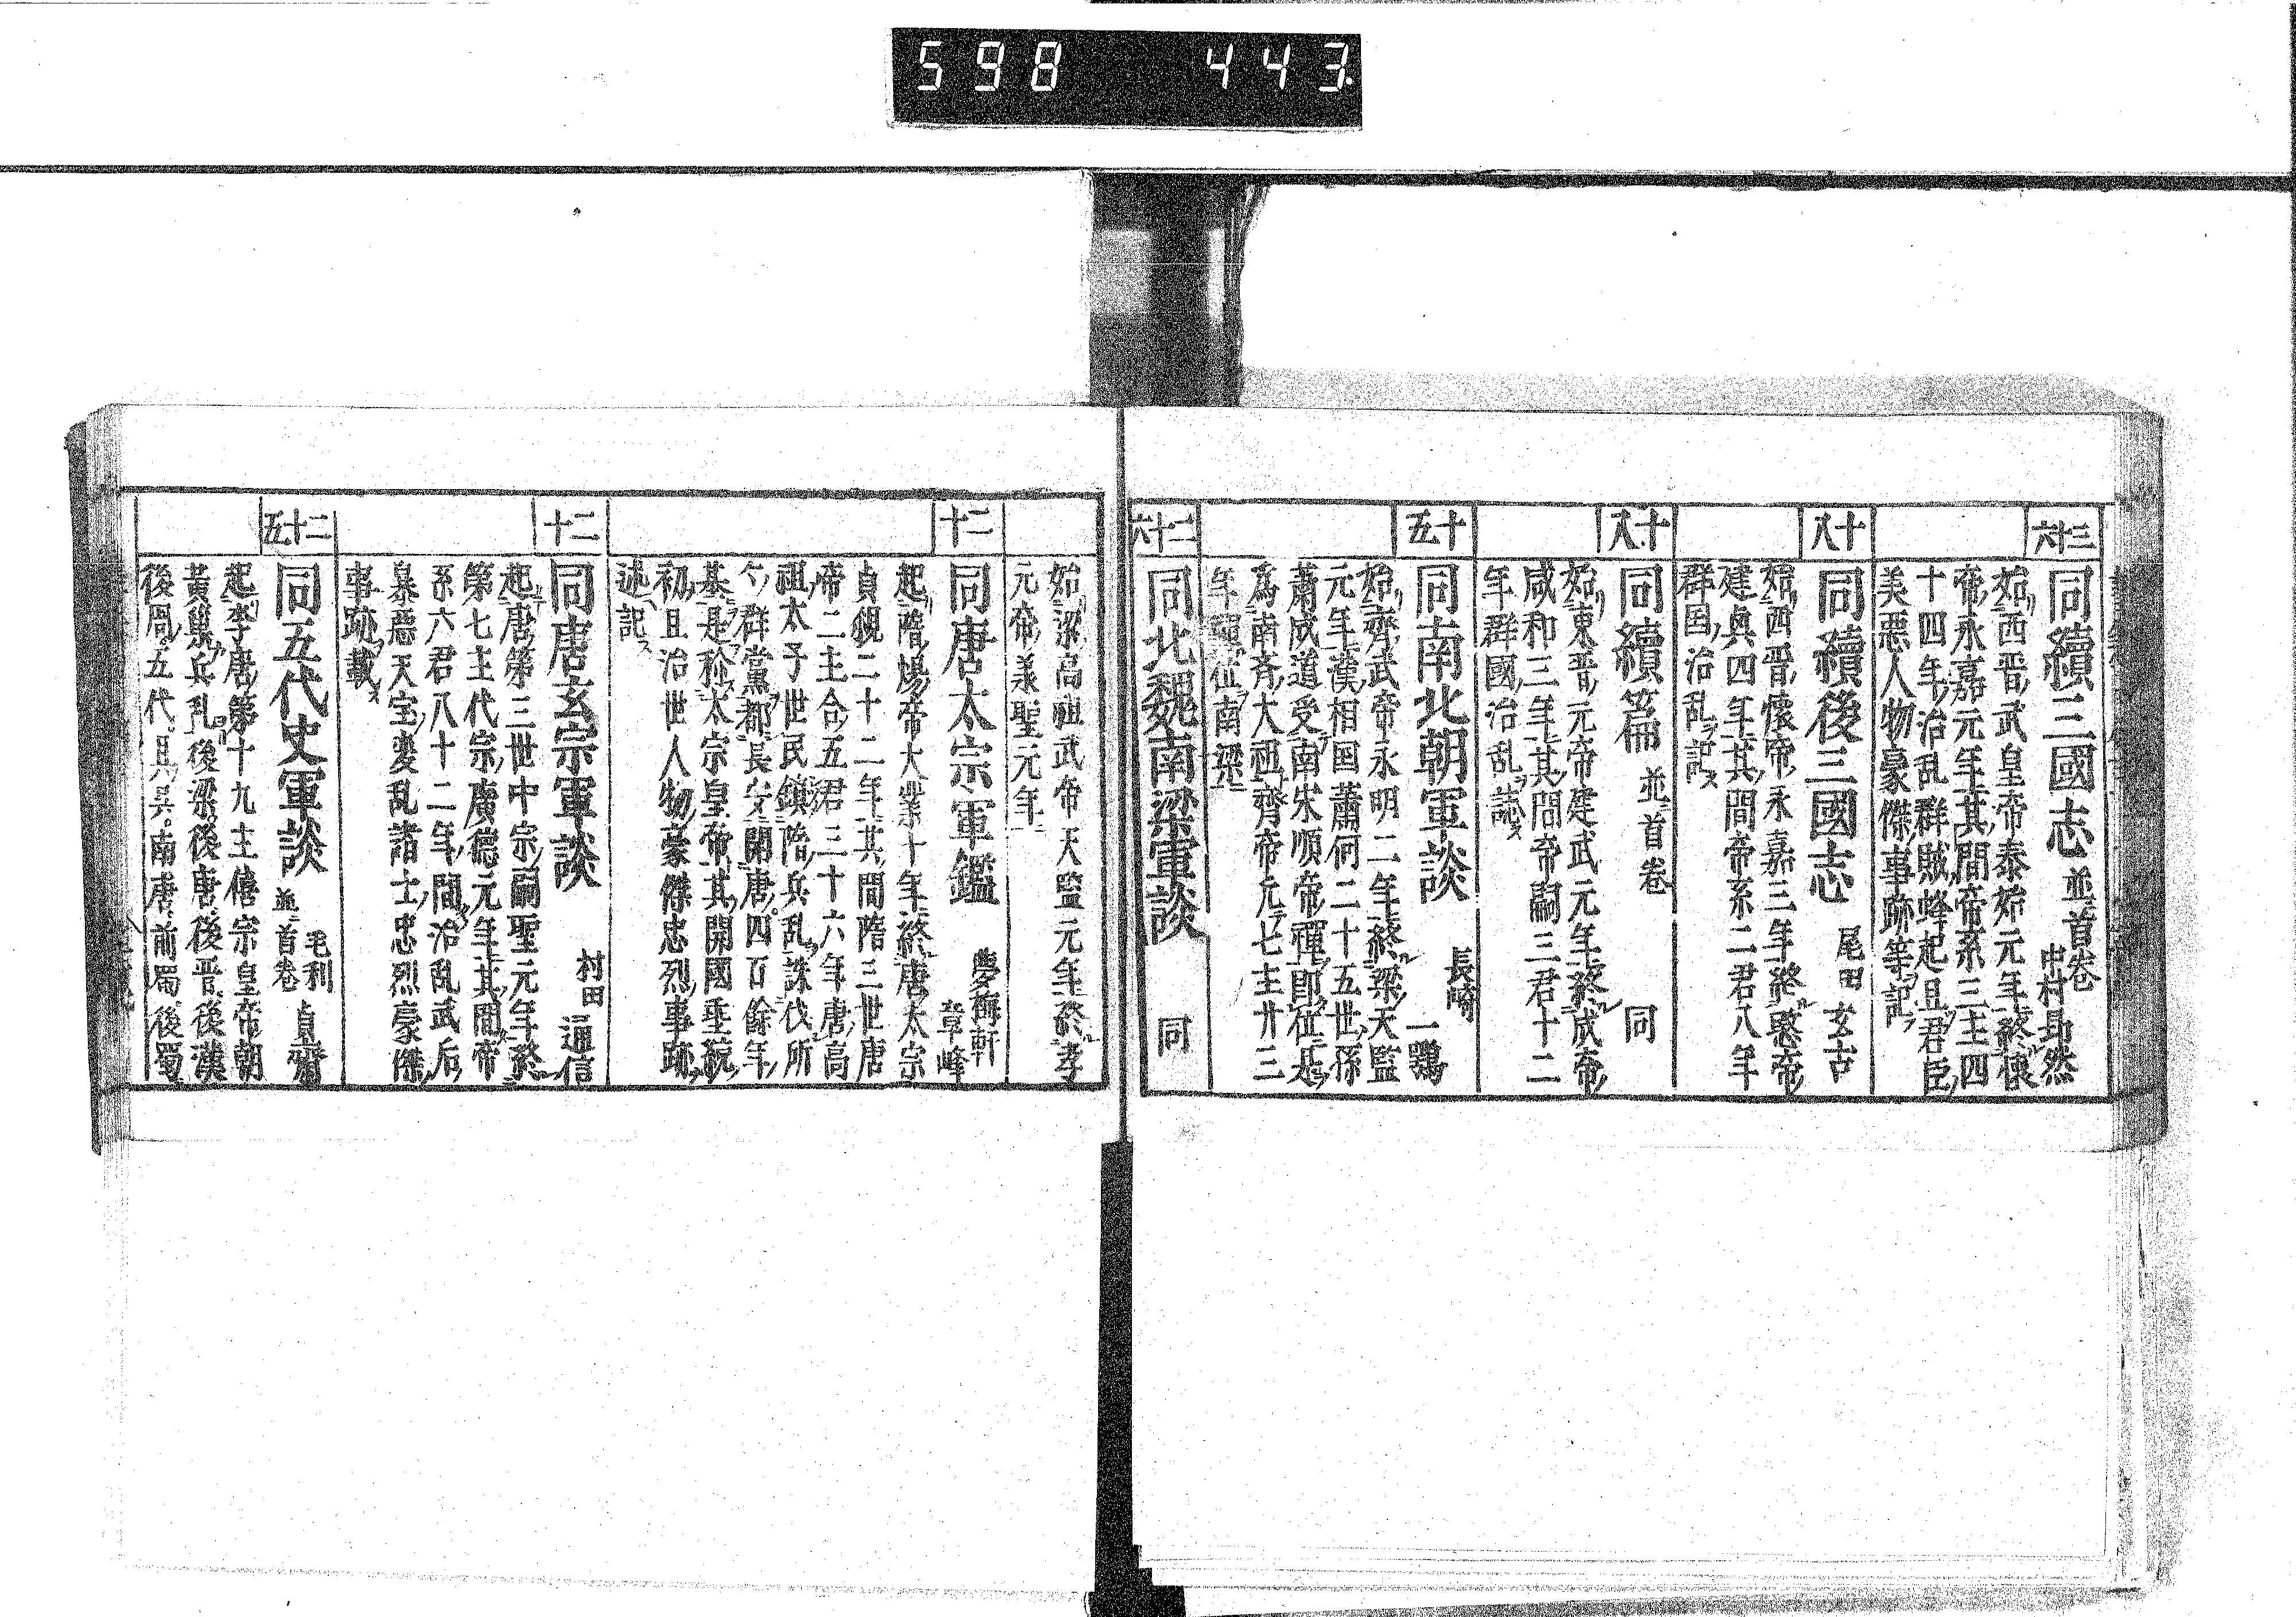 598 443
三十六
同續三國志 並首卷 中村昂然
始西晋武皇帝泰始元年終懐
帝永嘉元年其間帝系三主四
十四年治乱群賊蜂起且君臣
美悪人物豪傑事跡等記
十八
同續後三國志 尾田玄古
始西晋懐帝永嘉三年終愍帝
建興四年其間帝系二君八年
群国治乱ヲ記ス
十八
同續篇 並首卷 同
始東晋元帝建武元年終成帝
咸和三年其間帝嗣三君十二
年群國治乱ヲ誌ス
十五
同南北朝軍談 長崎一鶚
始齊武帝永明二年終梁天監
元年漢相国蕭何二十五世孫
蕭成道受南宋順帝禪即位是
為南斉大祖齊帝元七主廿三
年禪位南梁
二十六
同北魏南梁軍談 同
始梁高祖武帝天監元年終孝
元帝義聖元年
二十
同唐太宗軍鑑 夢梅軒章峰
起隋煬帝大業十年終唐太宗
貞観二十二年其間隋三世唐
帝二主合五君三十六年唐高
祖太子世民鎮隋兵乱誅伐所
々群黨都長安開唐四百餘年
基是称太宗皇帝其開國垂統
初且治世人物豪傑忠烈事跡
述記ス
二十
同唐玄宗軍談 村田通信
起唐第三世中宗嗣聖元年終
第七主代宗廣徳元年其間帝
系六君八十二年間治乱武后
暴悪天宝変乱諸士忠烈豪傑
事跡載ス
二十五
同五代史軍談 並首卷 毛利貞齋
起李唐第十九主僖宗皇帝朝
黄巣兵乱後梁後唐後晋後漢
後周五代且呉南唐前蜀後蜀